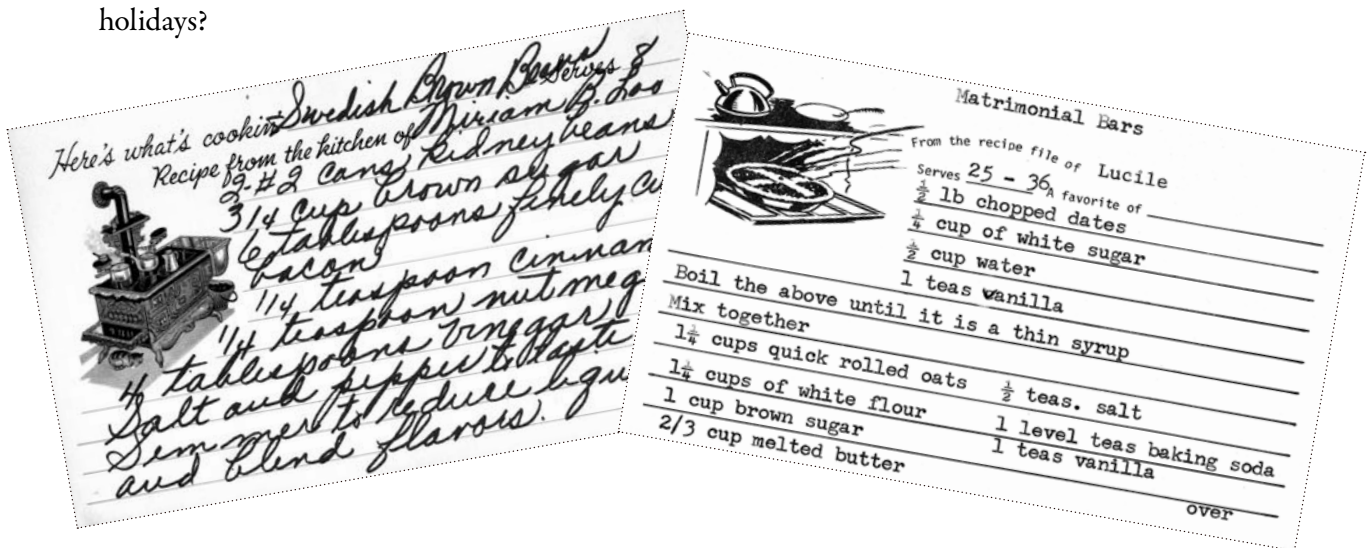 holidays?
Swedish Brown Beans Serves 8
Here's what's cookin
Recipe from the kitchen of Miriam B. Loo
2-#2 cans kidney beans
3/4 cup brown sugar
6 tablespoons finely
bacon
1/4 teaspoon
1/4 teaspoon nutmeg
4 tablespoons vinegar
Salt and pepper to taste
Simmer to reduce
and blend flavors.
Matrimonial Bars
From the recipe file of Lucile
Serves 25 - 36 A favorite of
½ lb chopped dates
¼ cup of white sugar
½ cup water
1 teas vanilla
Boil the above until it is a thin syrup
Mix together
1¼ cups quick rolled oats ½ teas. salt
1¼ cups of white flour 1 level teas baking soda
1 cup brown sugar 1 teas vanilla
2/3 cup melted butter
over